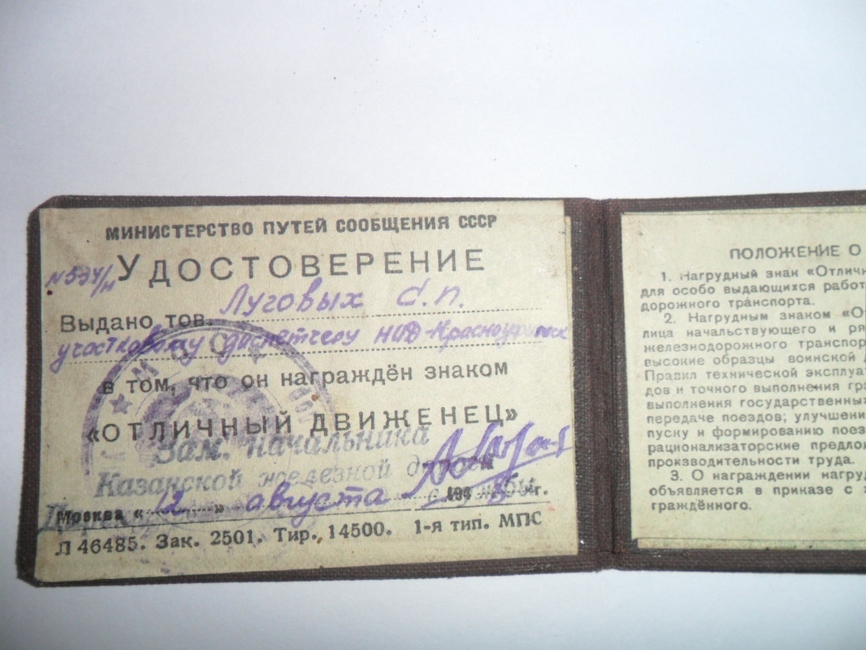 МИНИСТЕРСТВО ПУТЕЙ СООБЩЕНИЯ СССР
УДОСТОВЕРЕНИЕ
Выдано тов. Луговых С.П.
участковому диспетчеру НОД-Красноуфимск
в том, что он награждён знаком
«ОТЛИЧНЫЙ ДВИЖЕНЕЦ»
Зам. начальника
Казанской железной дороги
Москва « 12 » августа 194 г.
Л 46485. Зак. 2501. Тир. 14500. 1-я тип. МПС
ПОЛОЖЕНИЕ О
1. Нагрудный знак «Отличн
для особо выдающихся работ
дорожного транспорта.
2. Нагрудным знаком «О
лица начальствующего и ря
железнодорожного транспор
высокие образцы воинской
Правил технической эксплуат
дов и точного выполнения гра
выполнения государственных
передаче поездов; улучшени
пуску и формированию поез
рационализаторские предлож
производительности труда.
3. О награждении нагруд
объявляется в приказе с з
граждённого.